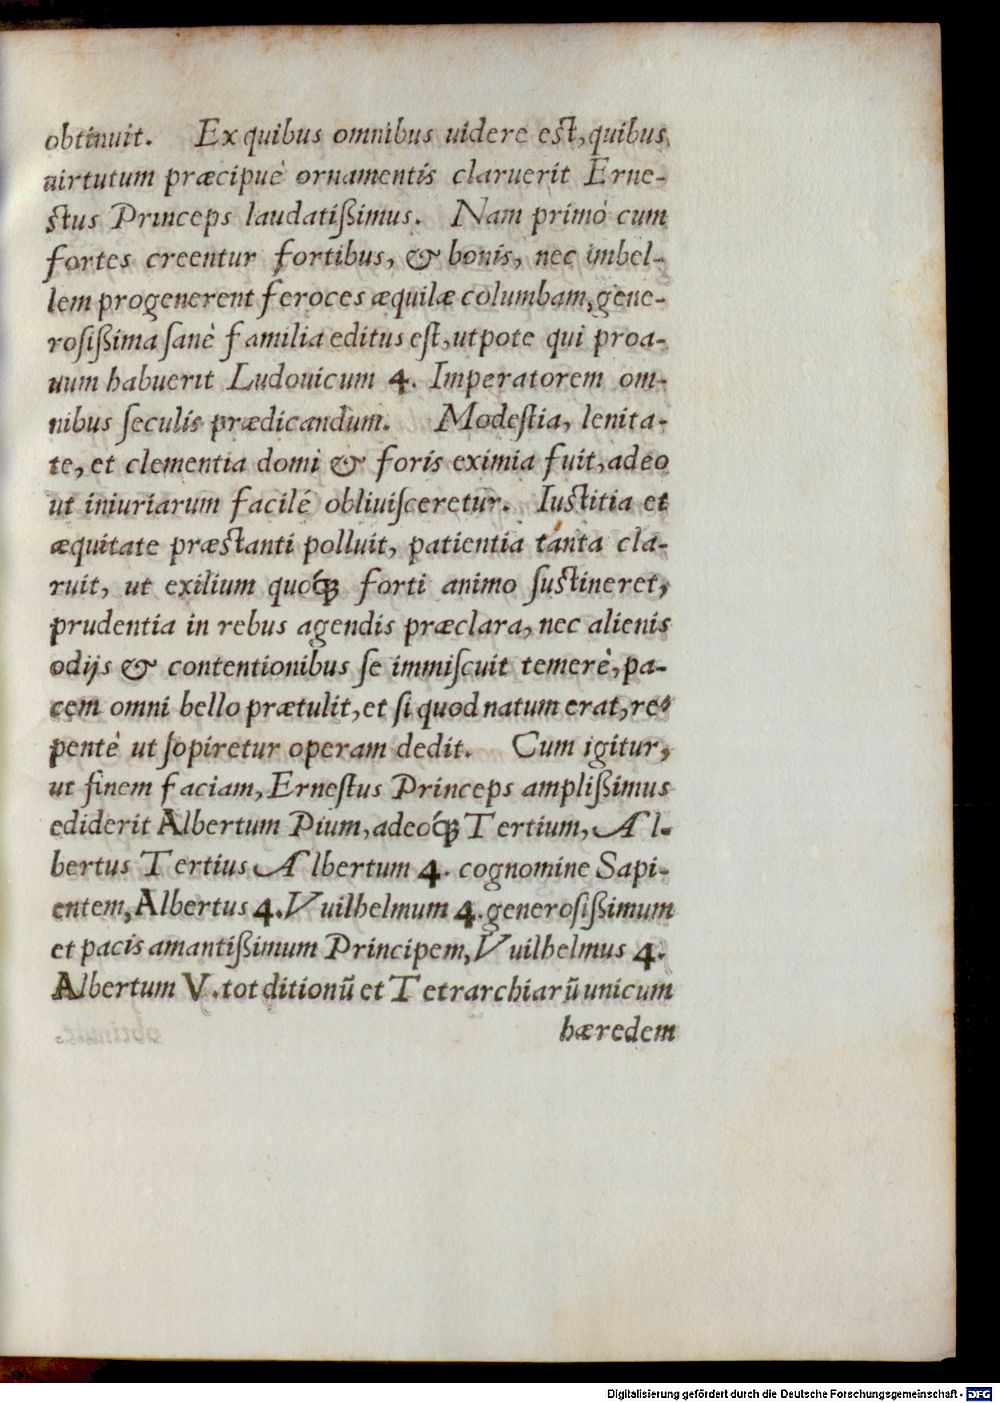 obtinuit. Ex quibus omnibus uidere est, quibus
uirtutum præcipuè ornamentis claruerit Erne-
stus Princeps laudatißimus. Nam primò cum
fortes creentur fortibus, & bonis, nec imbel-
lem progenerent feroces æquilæ columbam, gene-
rosißima sanè familia editus est, utpote qui proa-
uum habuerit Ludouicum 4. Imperatorem om-
nibus seculis prædicandum. Modestia, lenita-
te, et clementia domi & foris eximia fuit, adeo
ut iniuriarum facilè obliuisceretur. Iustitia et
æquitate præstanti polluit, patientia tanta cla-
ruit, ut exilium quoq́; forti animo sustineret,
prudentia in rebus agendis præclara, nec alienis
odijs & contentionibus se immiscuit temerè, pa-
cem omni bello prætulit, et si quod natum erat, re-
pentè ut sopiretur operam dedit. Cum igitur,
ut finem faciam, Ernestus Princeps amplißimus
ediderit Albertum Pium, adeoq́; Tertium, Al-
bertus Tertius Albertum 4. cognomine Sapi-
entem, Albertus 4. Vuilhelmum 4. generosißimum
et pacis amantißimum Principem, Vuilhelmus 4.
Albertum V. tot ditionũ et Tetrarchiarũ unicum
hæredem
Digitalisierung gefördert durch die Deutsche Forschungsgemeinschaft - DFG